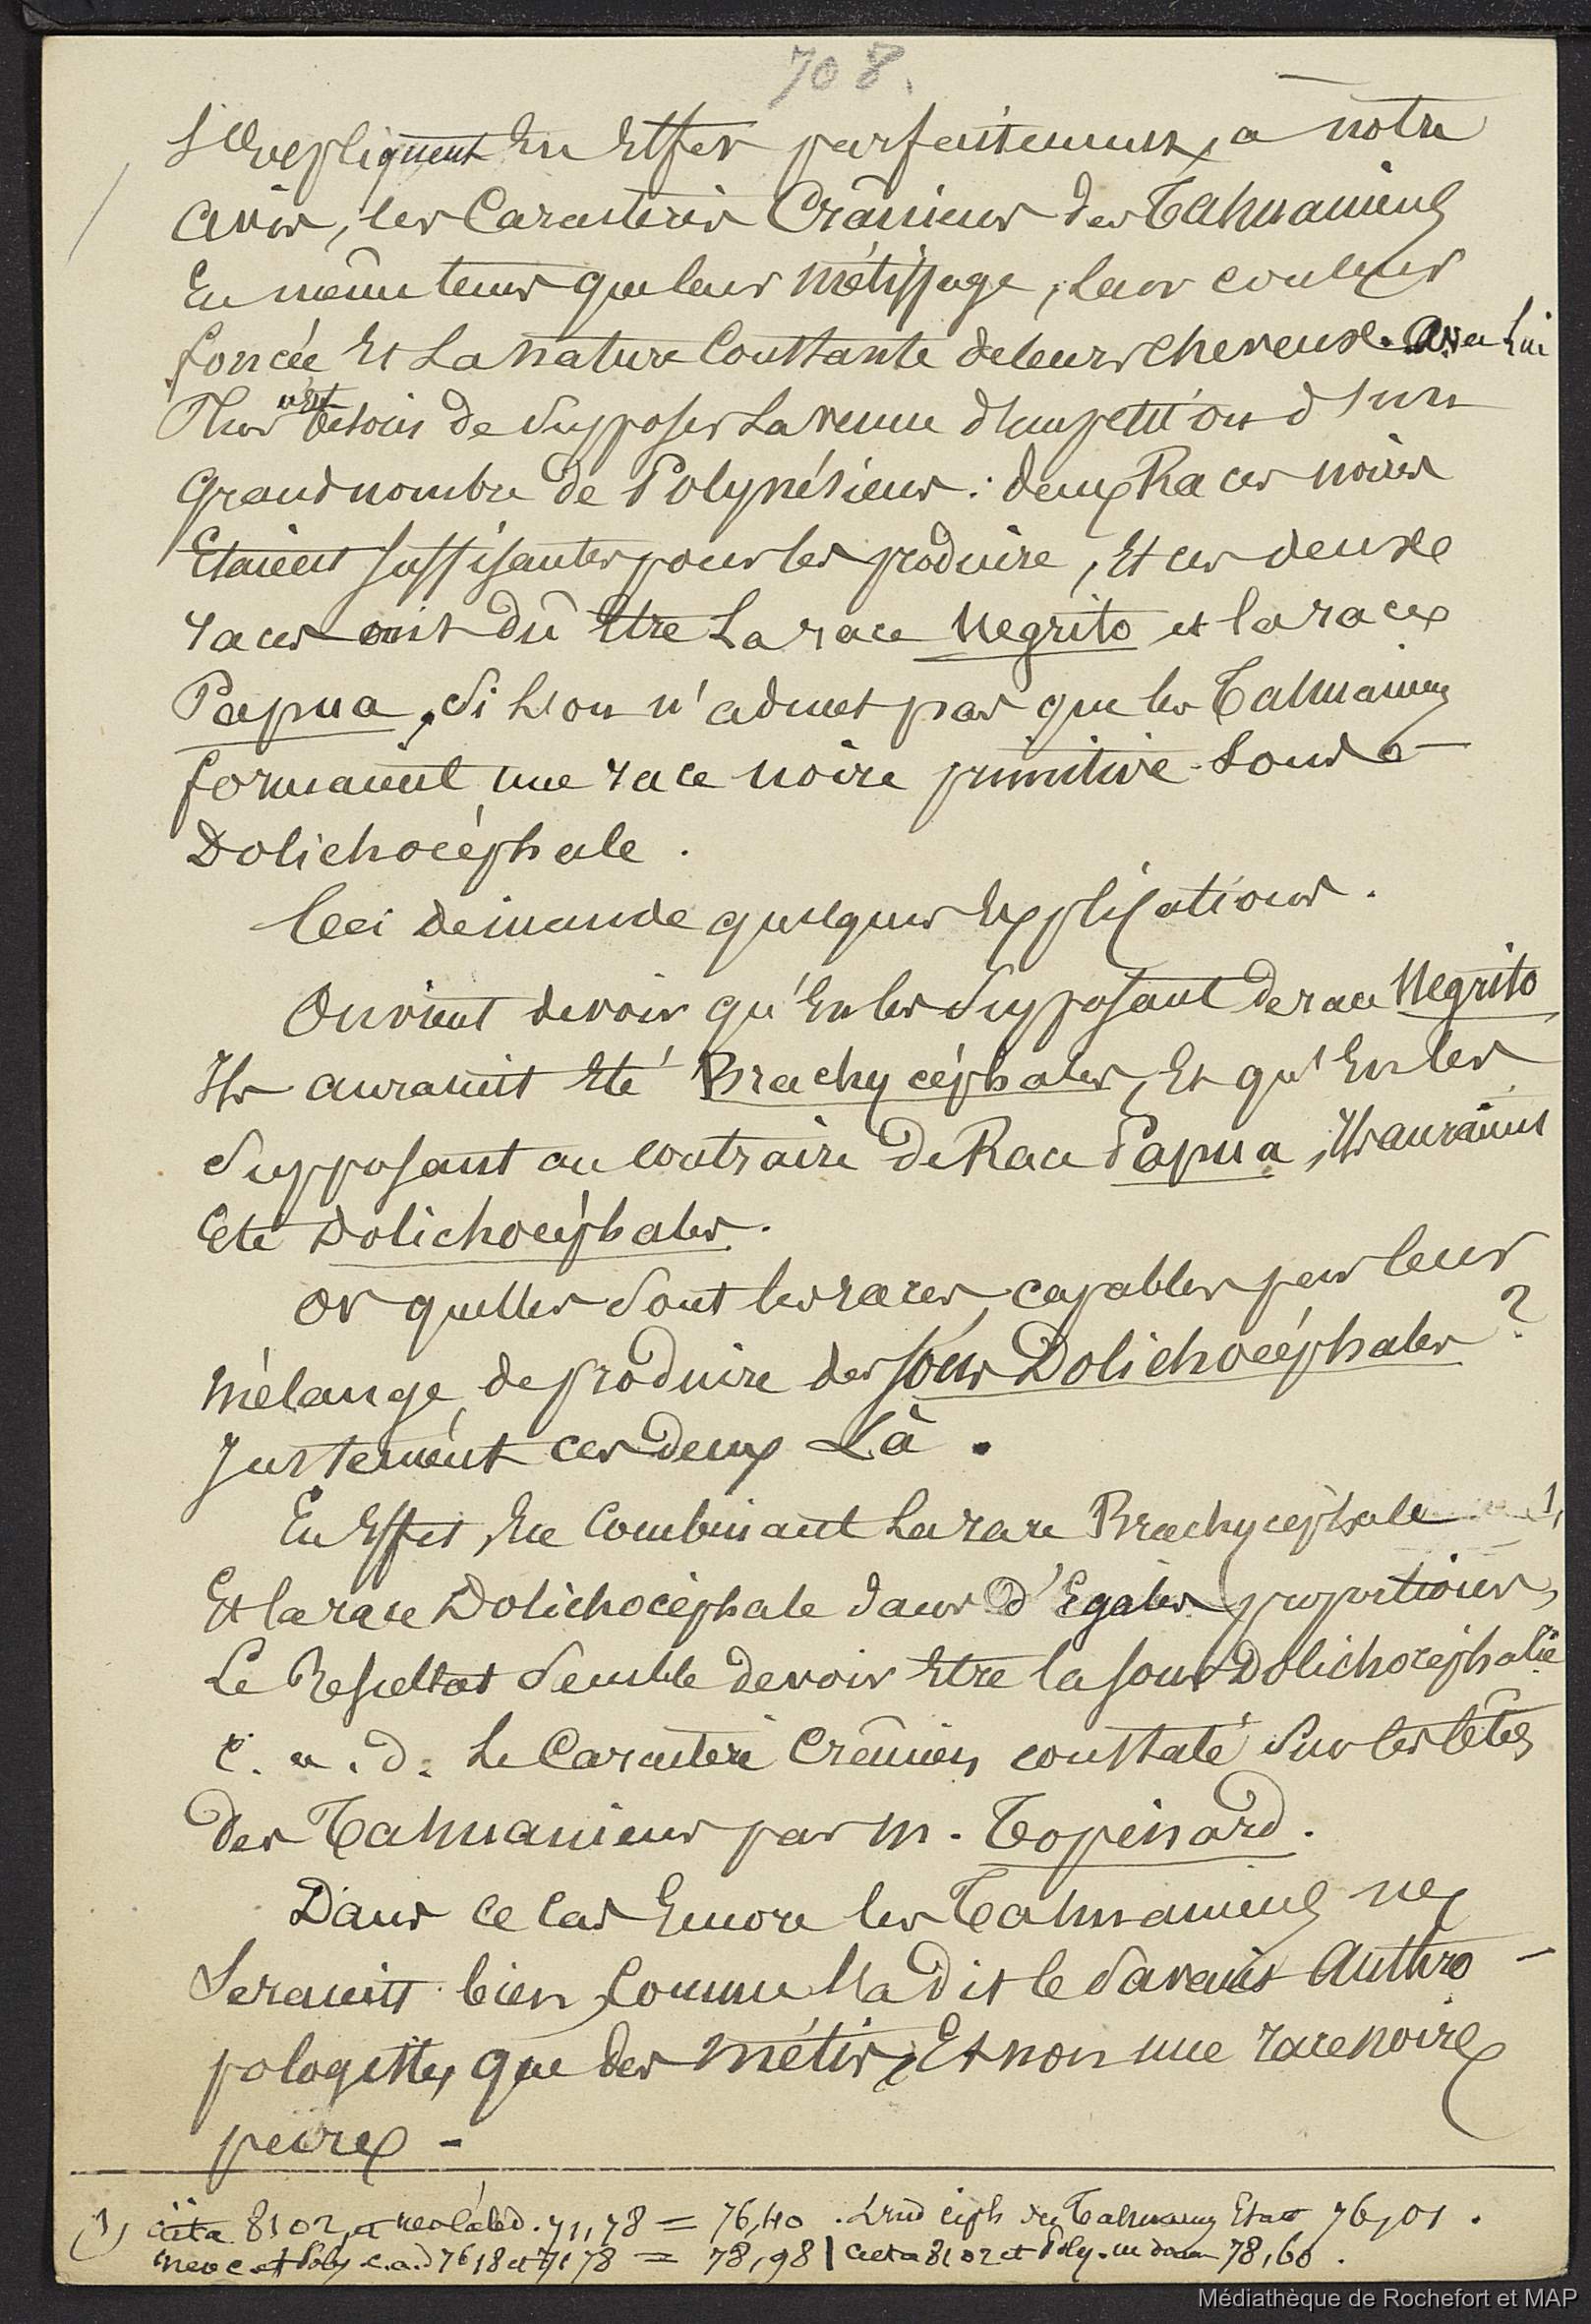 708.
S'expliquent En Effet parfaitement, a notre
avis, les Caractères Crâniens des Tasmaniens
En même tems que leur métissage, leur couleur
foncée Et La nature Constante de leurs cheveux. Avec Lui
Plus n'est besoin de Supposer La venue d'un petit ou d'un
grand nombre de Polynésiens : deux Races noires
Etaient suffisantes pour les produire, Et ces deux
races ont dû Etre La race Negrito et la race
Papua, Si L'on n'admet pas que les Tasmaniens
formaient une race noire primitive Sous-
Dolichocéphale.
Ceci demande quelques Explications.
On vient de voir qu'En les Supposant de race Negrito
Ils auraient Eté Brachycéphales, Et qu'En les
Supposant au contraire De Race Papua, Ils auraient
Eté Dolichocéphales.
Or quelles Sont les races, capables par leur
mélange, de produire des sous Dolichocéphales ?
Justement ces deux Là.
En Effet, En Combinant La race Brachycéphale 1,
Et la race Dolichocéphale dans d'Egales proportions,
Le Résultat Semble devoir Etre la sous Dolichocéphalie
C. a. d. Le Caractère Crânien constaté Sur les têtes
des Tasmaniens par M. Topinard.
Dans ce Cas Encore les Tasmaniens ne
Seraient bien, Comme L'a dit le Savant Anthro-
pologiste, que des métis, Et non une race noire
pure -
(1) aëta 81 02, et neo Caléd. 71,78 = 76,40. L'ind ceph des Tasmaniens Etant 76,01.
neo c. et Poly c.a.d 76 18 et 71 78 = 78,98 | aeta 81 02 et Poly. 78,60.
Médiathèque de Rochefort et MAP